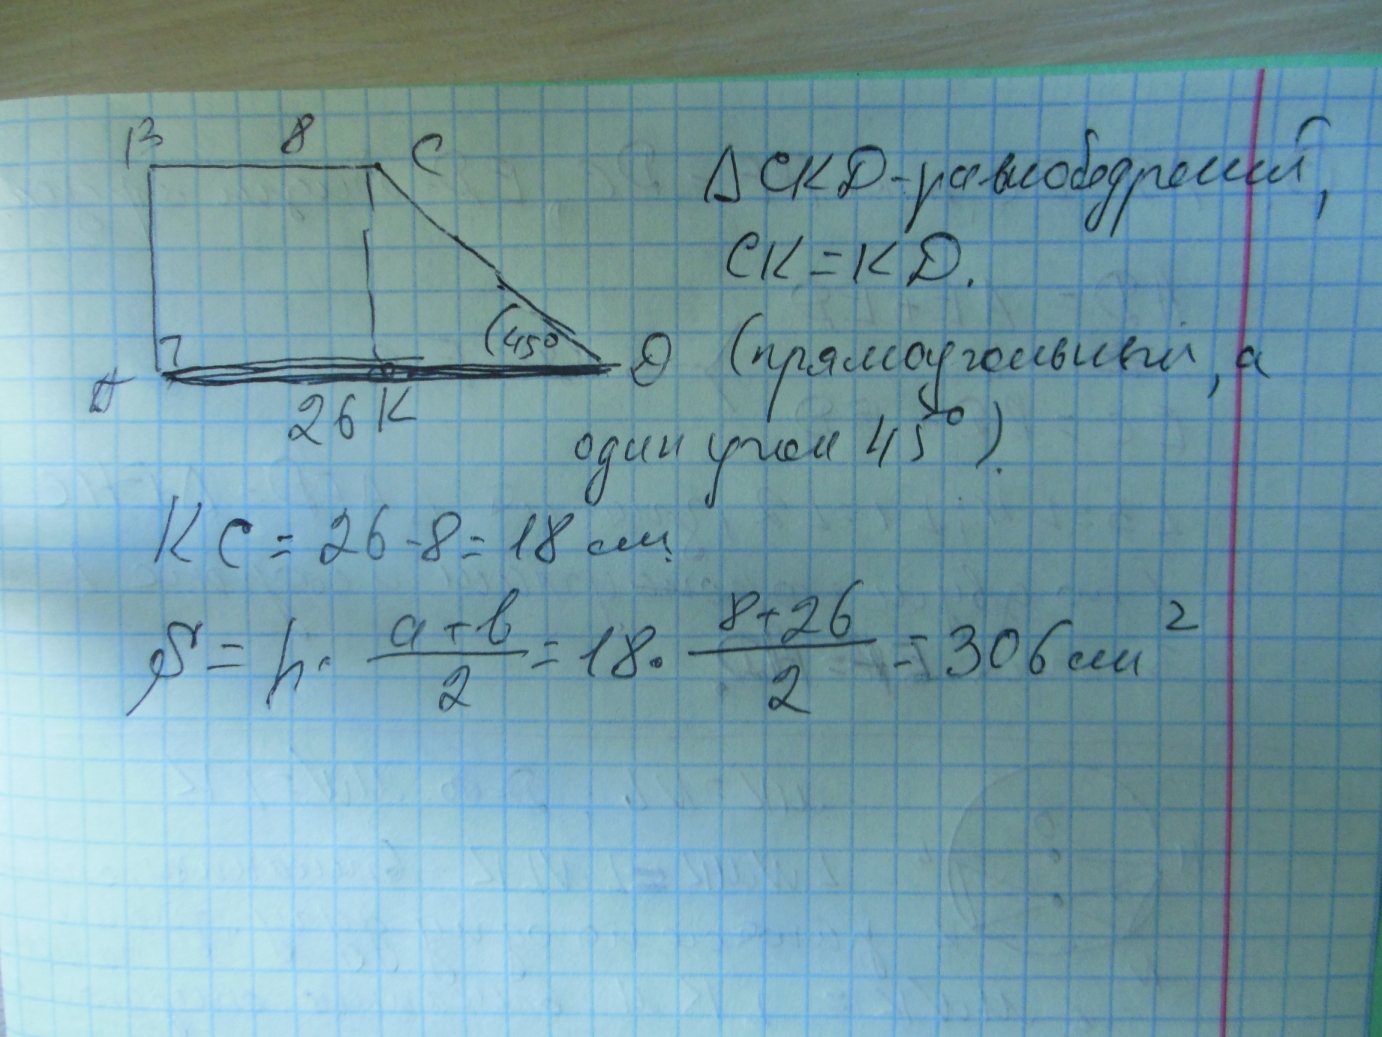 B 8 C
45°
A 26 K D
Δ CKD - равнобедренный,
CK = KD.
(прямоугольный, а
один угол 45°).
KC = 26 - 8 = 18 см
S = h · (a + b)/2 = 18 · (8 + 26)/2 = 306 см²